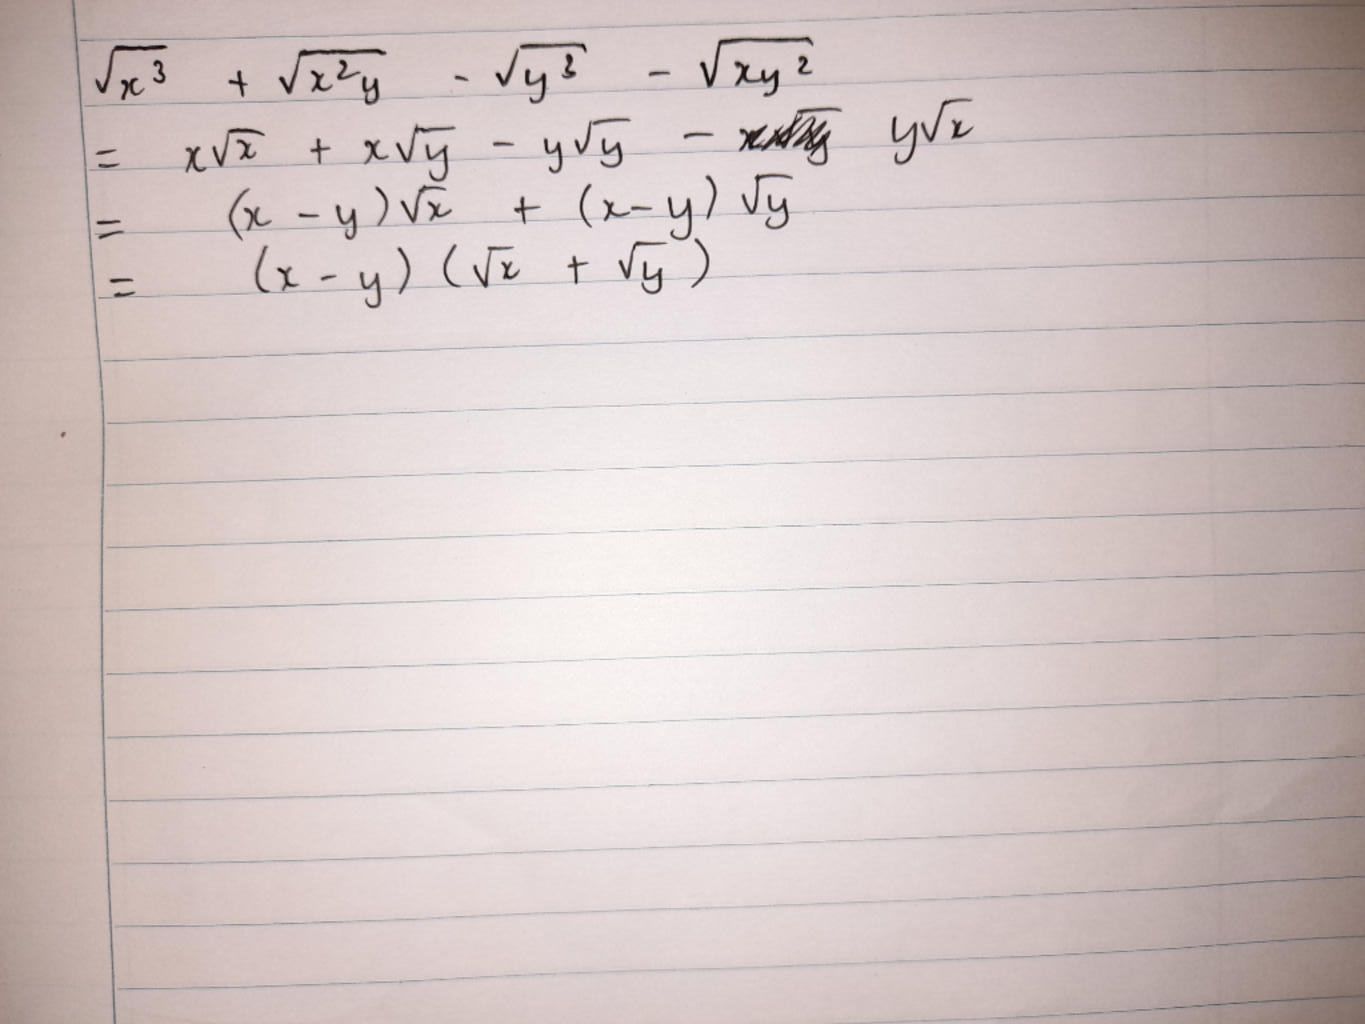 √x³ + √x²y - √y³ - √xy²
= x√x + x√y - y√y - y√x
= (x - y)√x + (x-y) √y
= (x - y) (√x + √y)